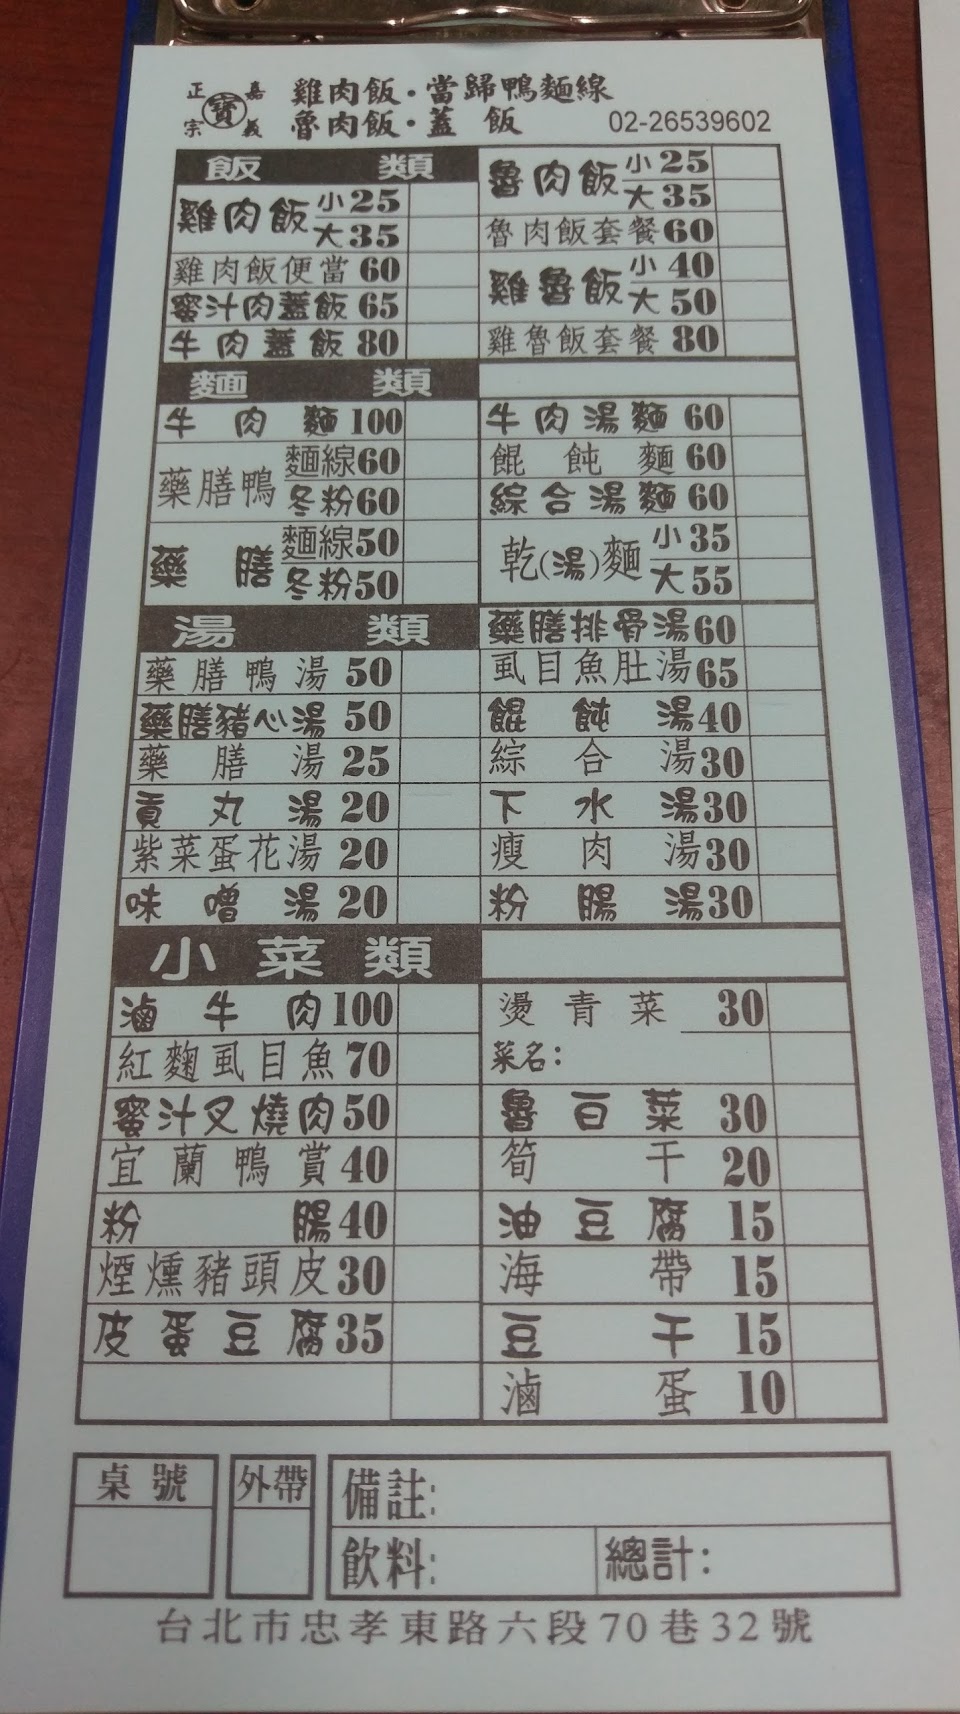 正 寶 嘉
宗 義
雞肉飯·當歸鴨麵線
魯肉飯·蓋 飯 02-26539602
飯 類
雞肉飯 小25
大35
雞肉飯便當 60
蜜汁肉蓋飯 65
牛肉蓋飯 80
魯肉飯 小25
大35
魯肉飯套餐60
雞魯飯 小40
大50
雞魯飯套餐80
麵 類
牛肉麵100
藥膳鴨 麵線60
冬粉60
藥膳 麵線50
冬粉50
牛肉湯麵60
餛飩麵60
綜合湯麵60
乾(湯)麵 小35
大55
湯 類
藥膳鴨湯50
藥膳豬心湯50
藥膳湯25
貢丸湯20
紫菜蛋花湯20
味噌湯20
藥膳排骨湯60
虱目魚肚湯65
餛飩湯40
綜合湯30
下水湯30
瘦肉湯30
粉腸湯30
小菜類
滷牛肉100
紅麴虱目魚70
蜜汁叉燒肉50
宜蘭鴨賞40
粉腸40
煙燻豬頭皮30
皮蛋豆腐35
燙青菜 30
菜名:
魯白菜 30
筍干 20
油豆腐 15
海帶 15
豆干 15
滷蛋 10
桌號
外帶
備註:
飲料:
總計:
台北市忠孝東路六段70巷32號